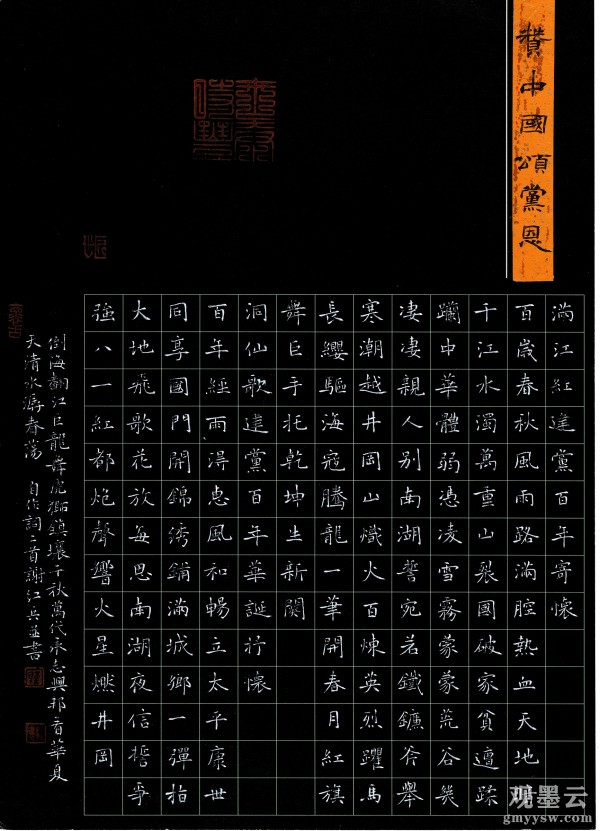 贊中國頌黨恩
滿江紅建黨百年寄懷
百歲春秋風雨路滿腔熱血天地
千江水濁萬重山裂國破家貧遭蹂
躪中華體弱憑凌雪霧蒙蒙荒谷
淒淒親人別南湖誓宛若鐵鐮斧舉
寒潮越井岡山熾火百煉英烈躍馬
長纓驅海寇騰龍一華開春月紅旗
舞巨手托乾坤生新闋
洞仙歌建黨百年華誕抒懷
百年經雨得惠風和暢立太平康世
同享國門開錦綉鋪滿城鄉一彈指
大地飛歌花放每思南湖夜信誓爭
強八一紅都炮聲響火星燃井岡
倒海翻江巨龍舞虎獅鎮壤千秋萬代承志興邦看華夏
天清水潺春蕩 自作詞二首謝江兵並書
观墨云
gmyysw.com